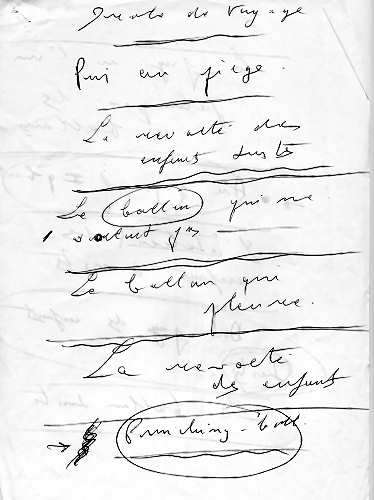 de Voyage
Pris au piège.
La révolte des
enfants
Le ballon qui ne
pas
Le ballon qui
pleure.
La révolte
des enfants
Punching-ball